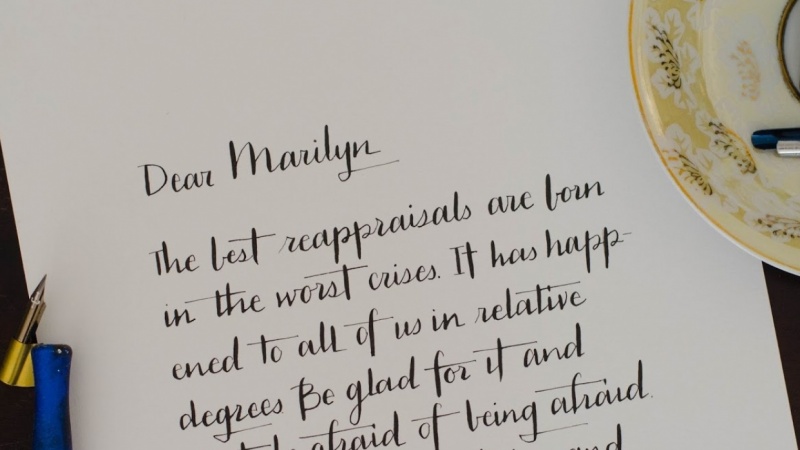 Dear Marilyn
The best reappraisals are born
in the worst crises. It has happ-
ened to all of us in relative
degrees. Be glad for it and
afraid of being afraid.
and